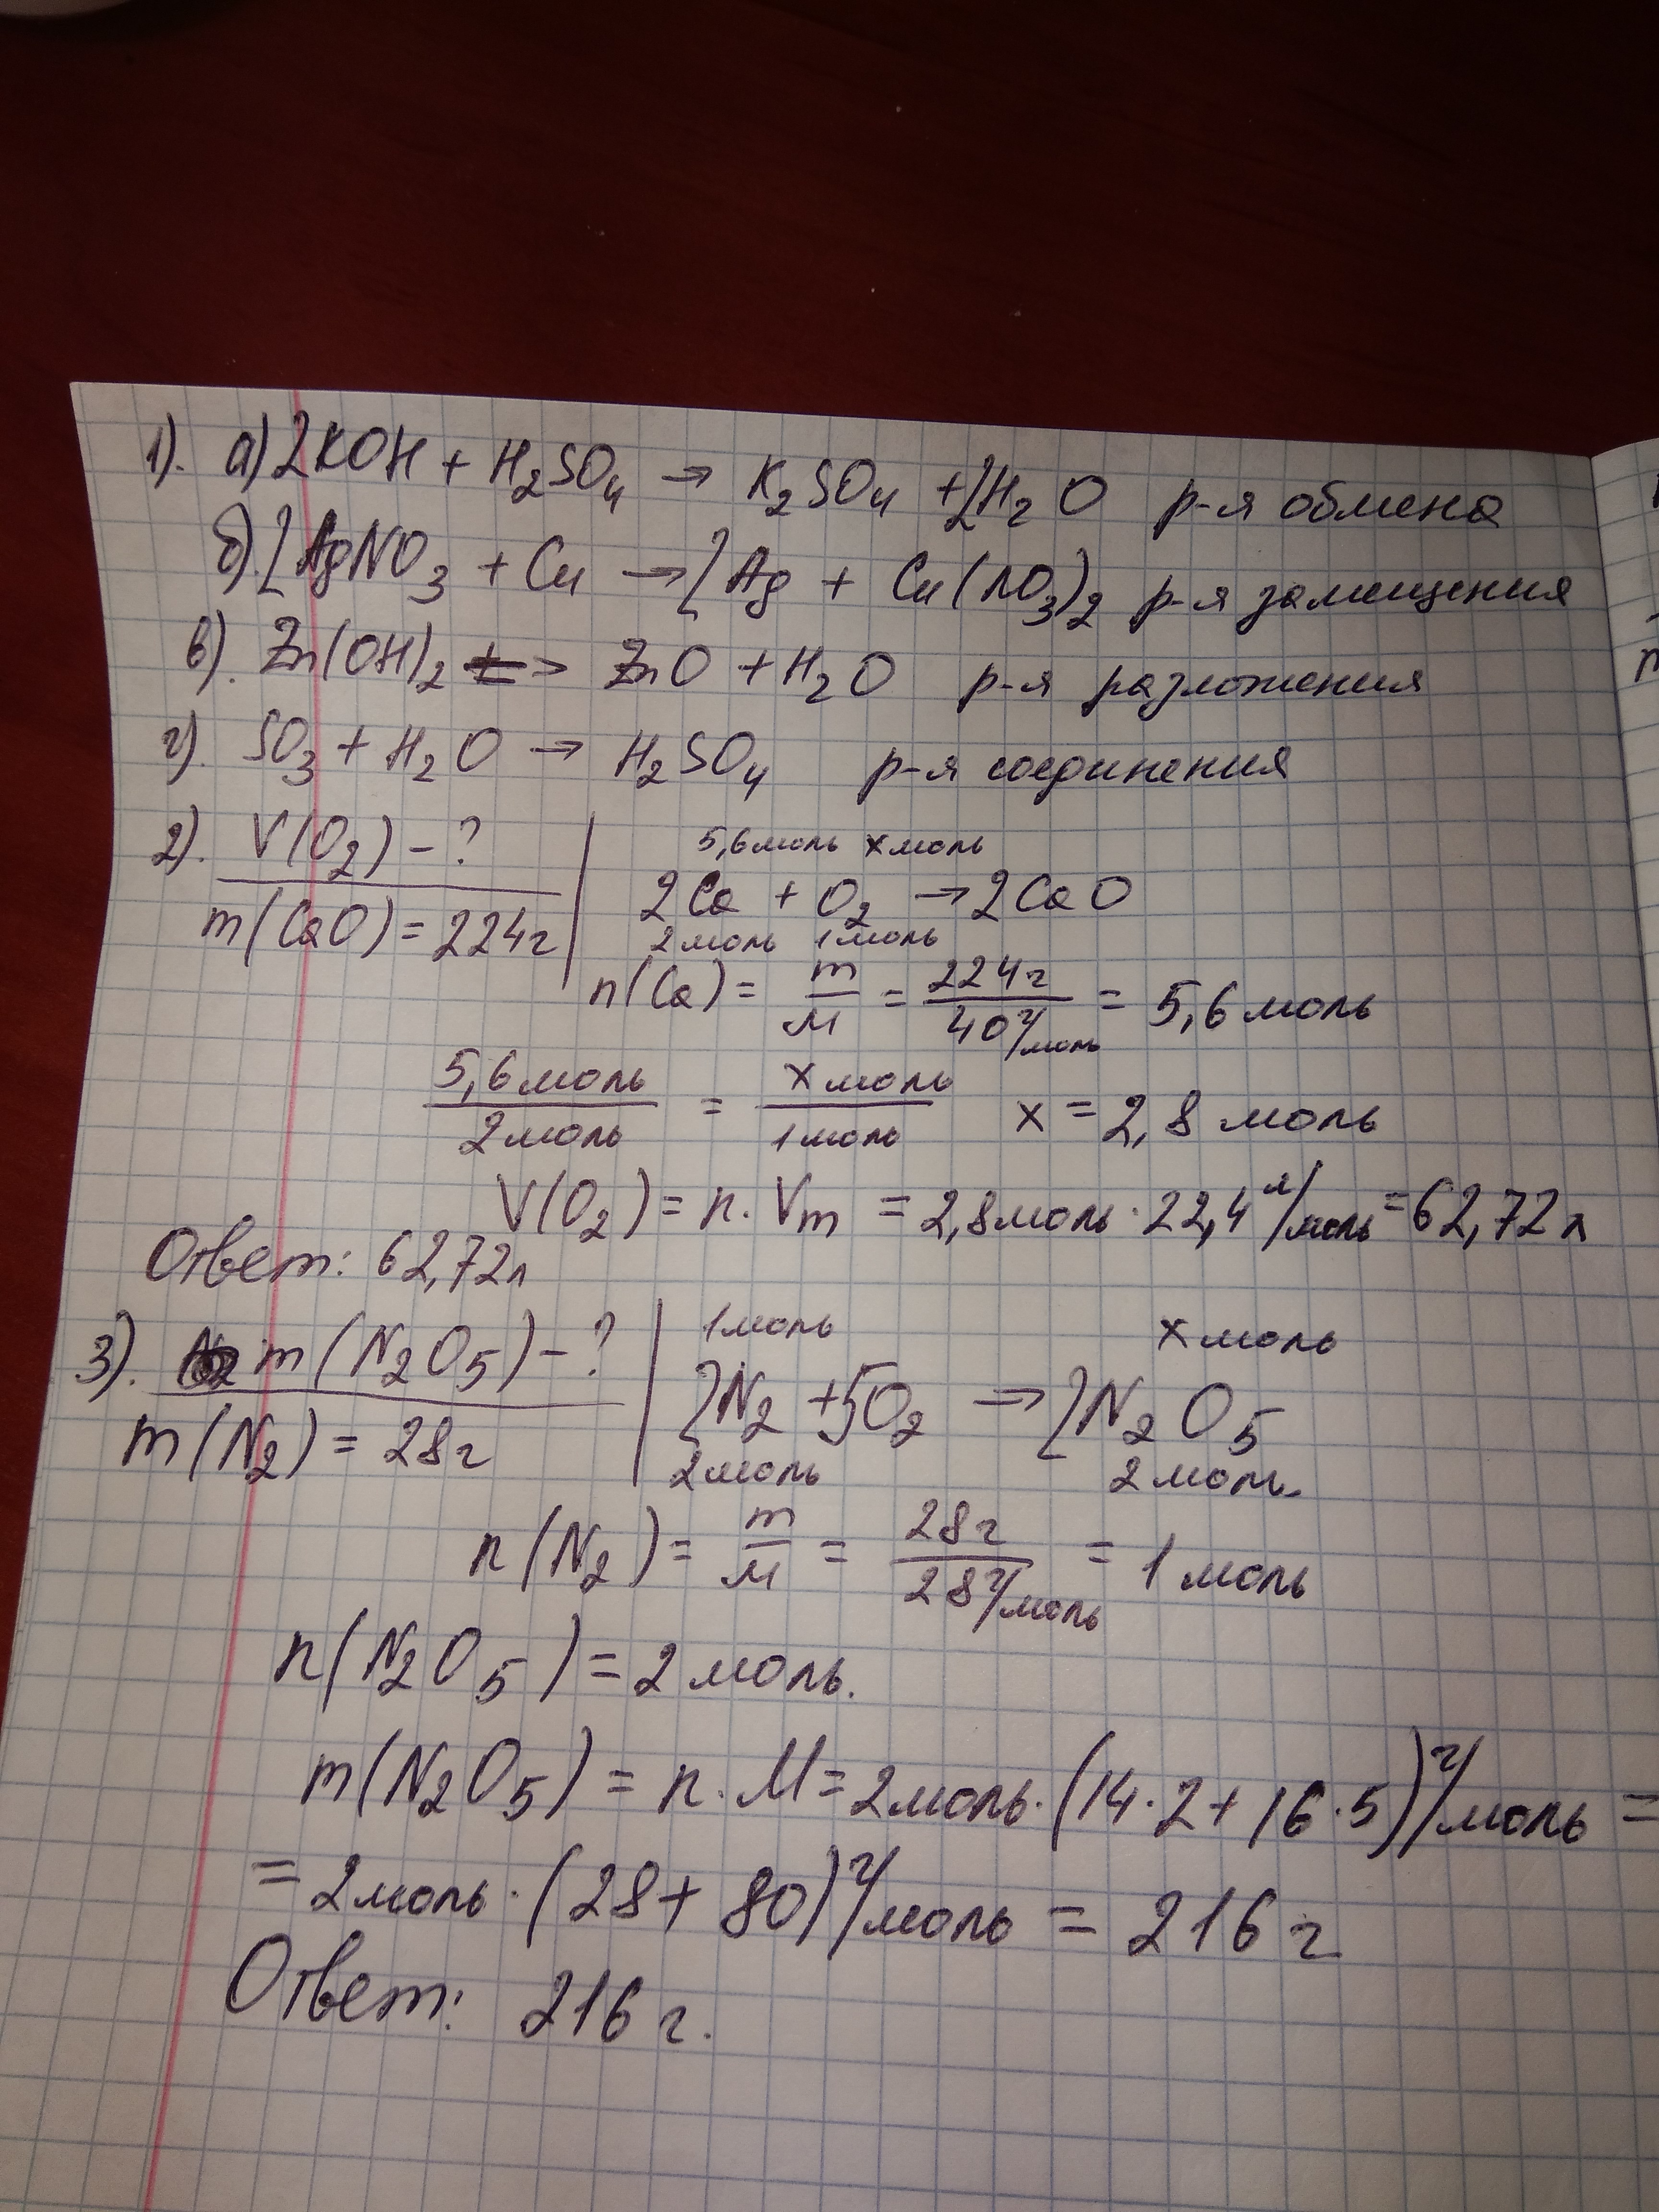 1). а) 2KOH + H₂SO₄ → K₂SO₄ + 2H₂O р-я обмена
б). 2AgNO₃ + Cu → 2Ag + Cu(NO₃)₂ р-я замещения
в). Zn(OH)₂ → ZnO + H₂O р-я разложения
г). SO₃ + H₂O → H₂SO₄ р-я соединения
2). V(O₂) - ?
m(CaO) = 224г
5,6моль x моль
2Ca + O₂ → 2CaO
2моль 1моль
n(Ca) = m/M = 224г/40г/моль = 5,6 моль
5,6моль/2моль = x моль/1моль x = 2,8 моль
V(O₂) = n · Vm = 2,8моль · 22,4 л/моль = 62,72 л
Ответ: 62,72л
3). m(N₂O₅) - ?
m(N₂) = 28г
1моль x моль
2N₂ + 5O₂ → 2N₂O₅
2моль 2моль.
n(N₂) = m/M = 28г/28г/моль = 1 моль
n(N₂O₅) = 2 моль.
m(N₂O₅) = n · M = 2моль · (14 · 2 + 16 · 5) г/моль =
= 2моль · (28 + 80) г/моль = 216 г
Ответ: 216 г.